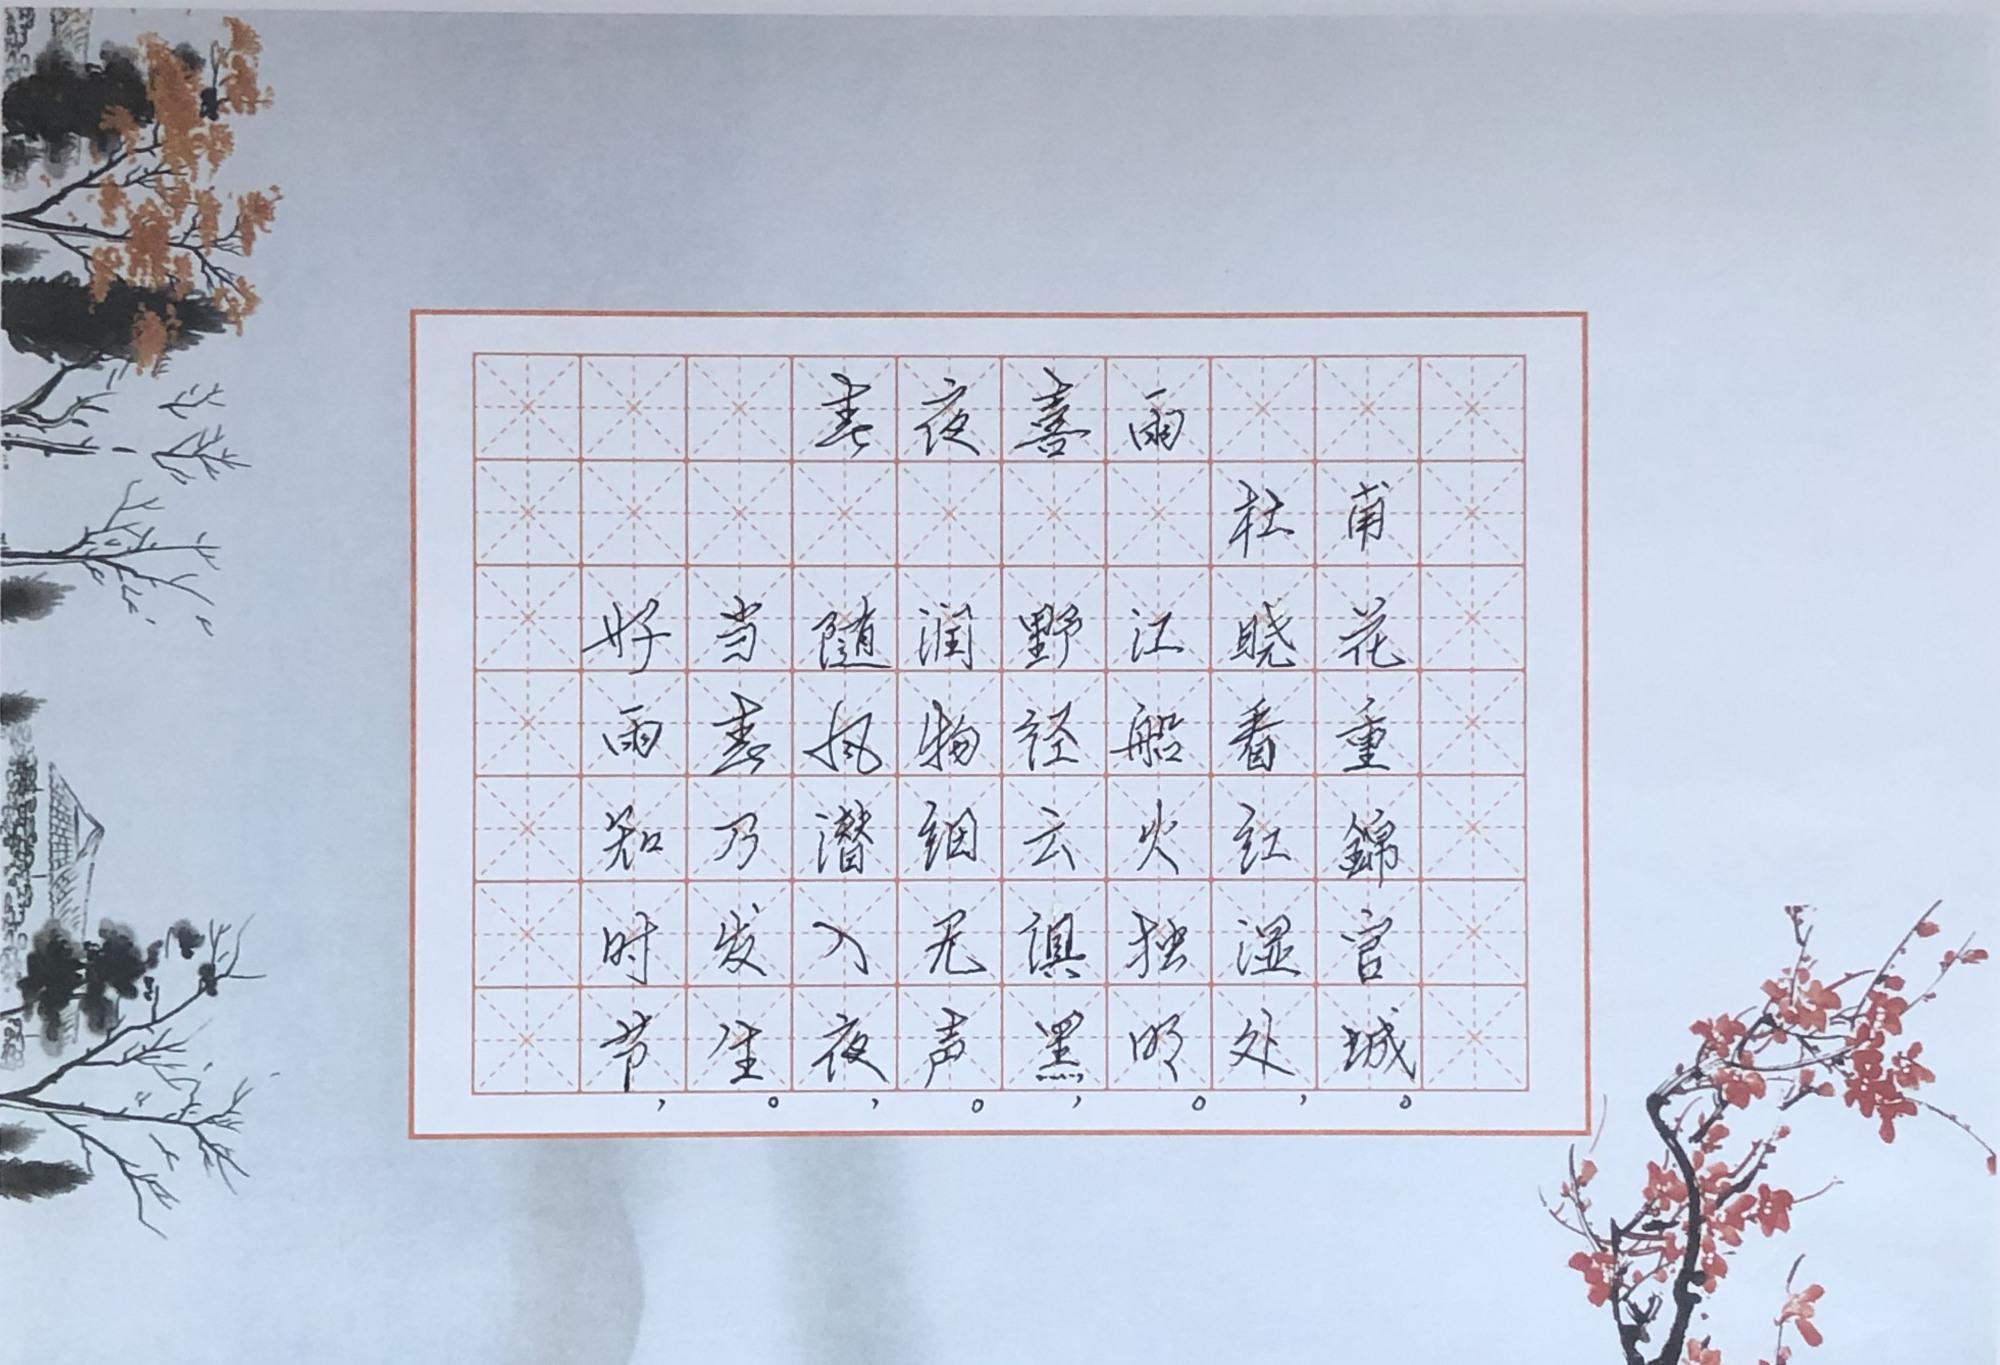 春夜喜雨
杜甫
好雨知时节，
当春乃发生。
随风潜入夜，
润物细无声。
野径云俱黑，
江船火独明。
晓看红湿处，
花重錦官城。